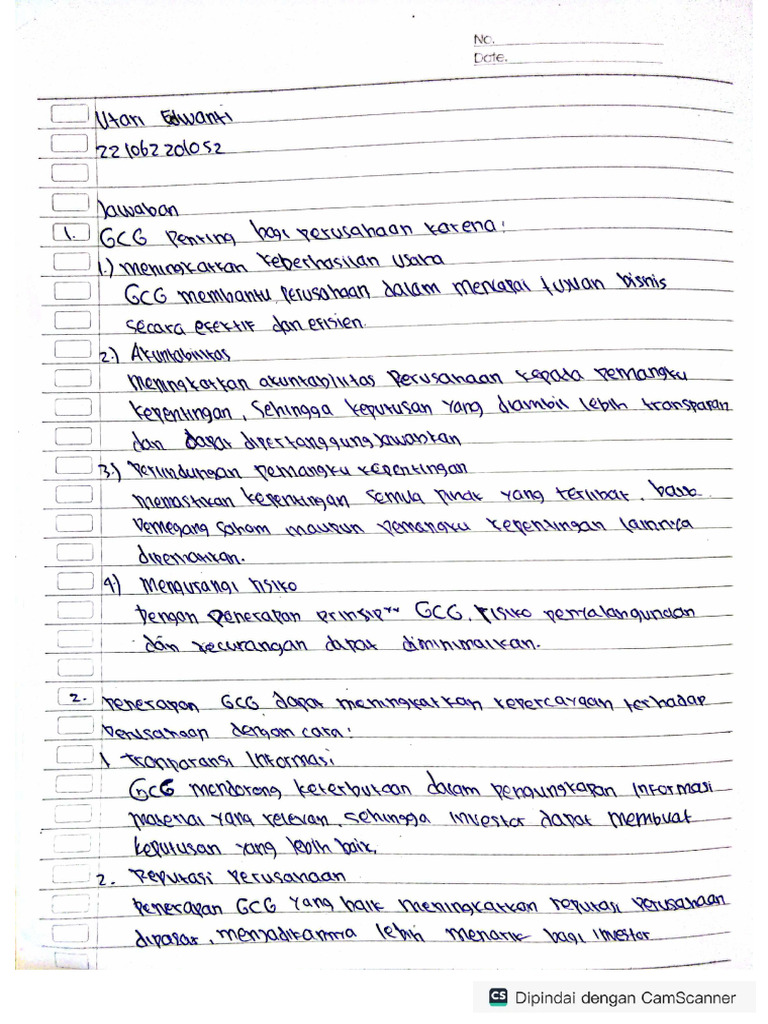 No.
Date.
Utari Edwanti
221062201052
Jawaban
1. GCG Penting bagi perusahaan karena:
1.) meningkatkan keberhasilan usaha
GCG membantu perusahaan dalam mencapai tujuan bisnis
secara efektif dan efisien.
2.) Akuntabilitas
meningkatkan akuntabilitas perusahaan kepada pemangku
kepentingan, sehingga keputusan yang diambil lebih transparan
dan dapat dipertanggungjawabkan
3.) perlindungan pemangku kepentingan
memastikan kepentingan semua pihak yang terlibat, baik
pemegang saham maupun pemangku kepentingan lainnya
diperhatikan.
4.) mengurangi risiko
Dengan penerapan prinsip" GCG, risiko penyalahgunaan
dan kecurangan dapat diminimalkan.
2. penerapan GCG dapat meningkatkan kepercayaan terhadap
perusahaan dengan cara:
1. transparansi informasi
GCG mendorong keterbukaan dalam pengungkapan informasi
material yang relevan, sehingga investor dapat membuat
keputusan yang lebih baik.
2. Reputasi perusahaan
penerapan GCG yang baik meningkatkan reputasi perusahaan
dipasar, menjadikannya lebih menarik bagi investor
CS Dipindai dengan CamScanner